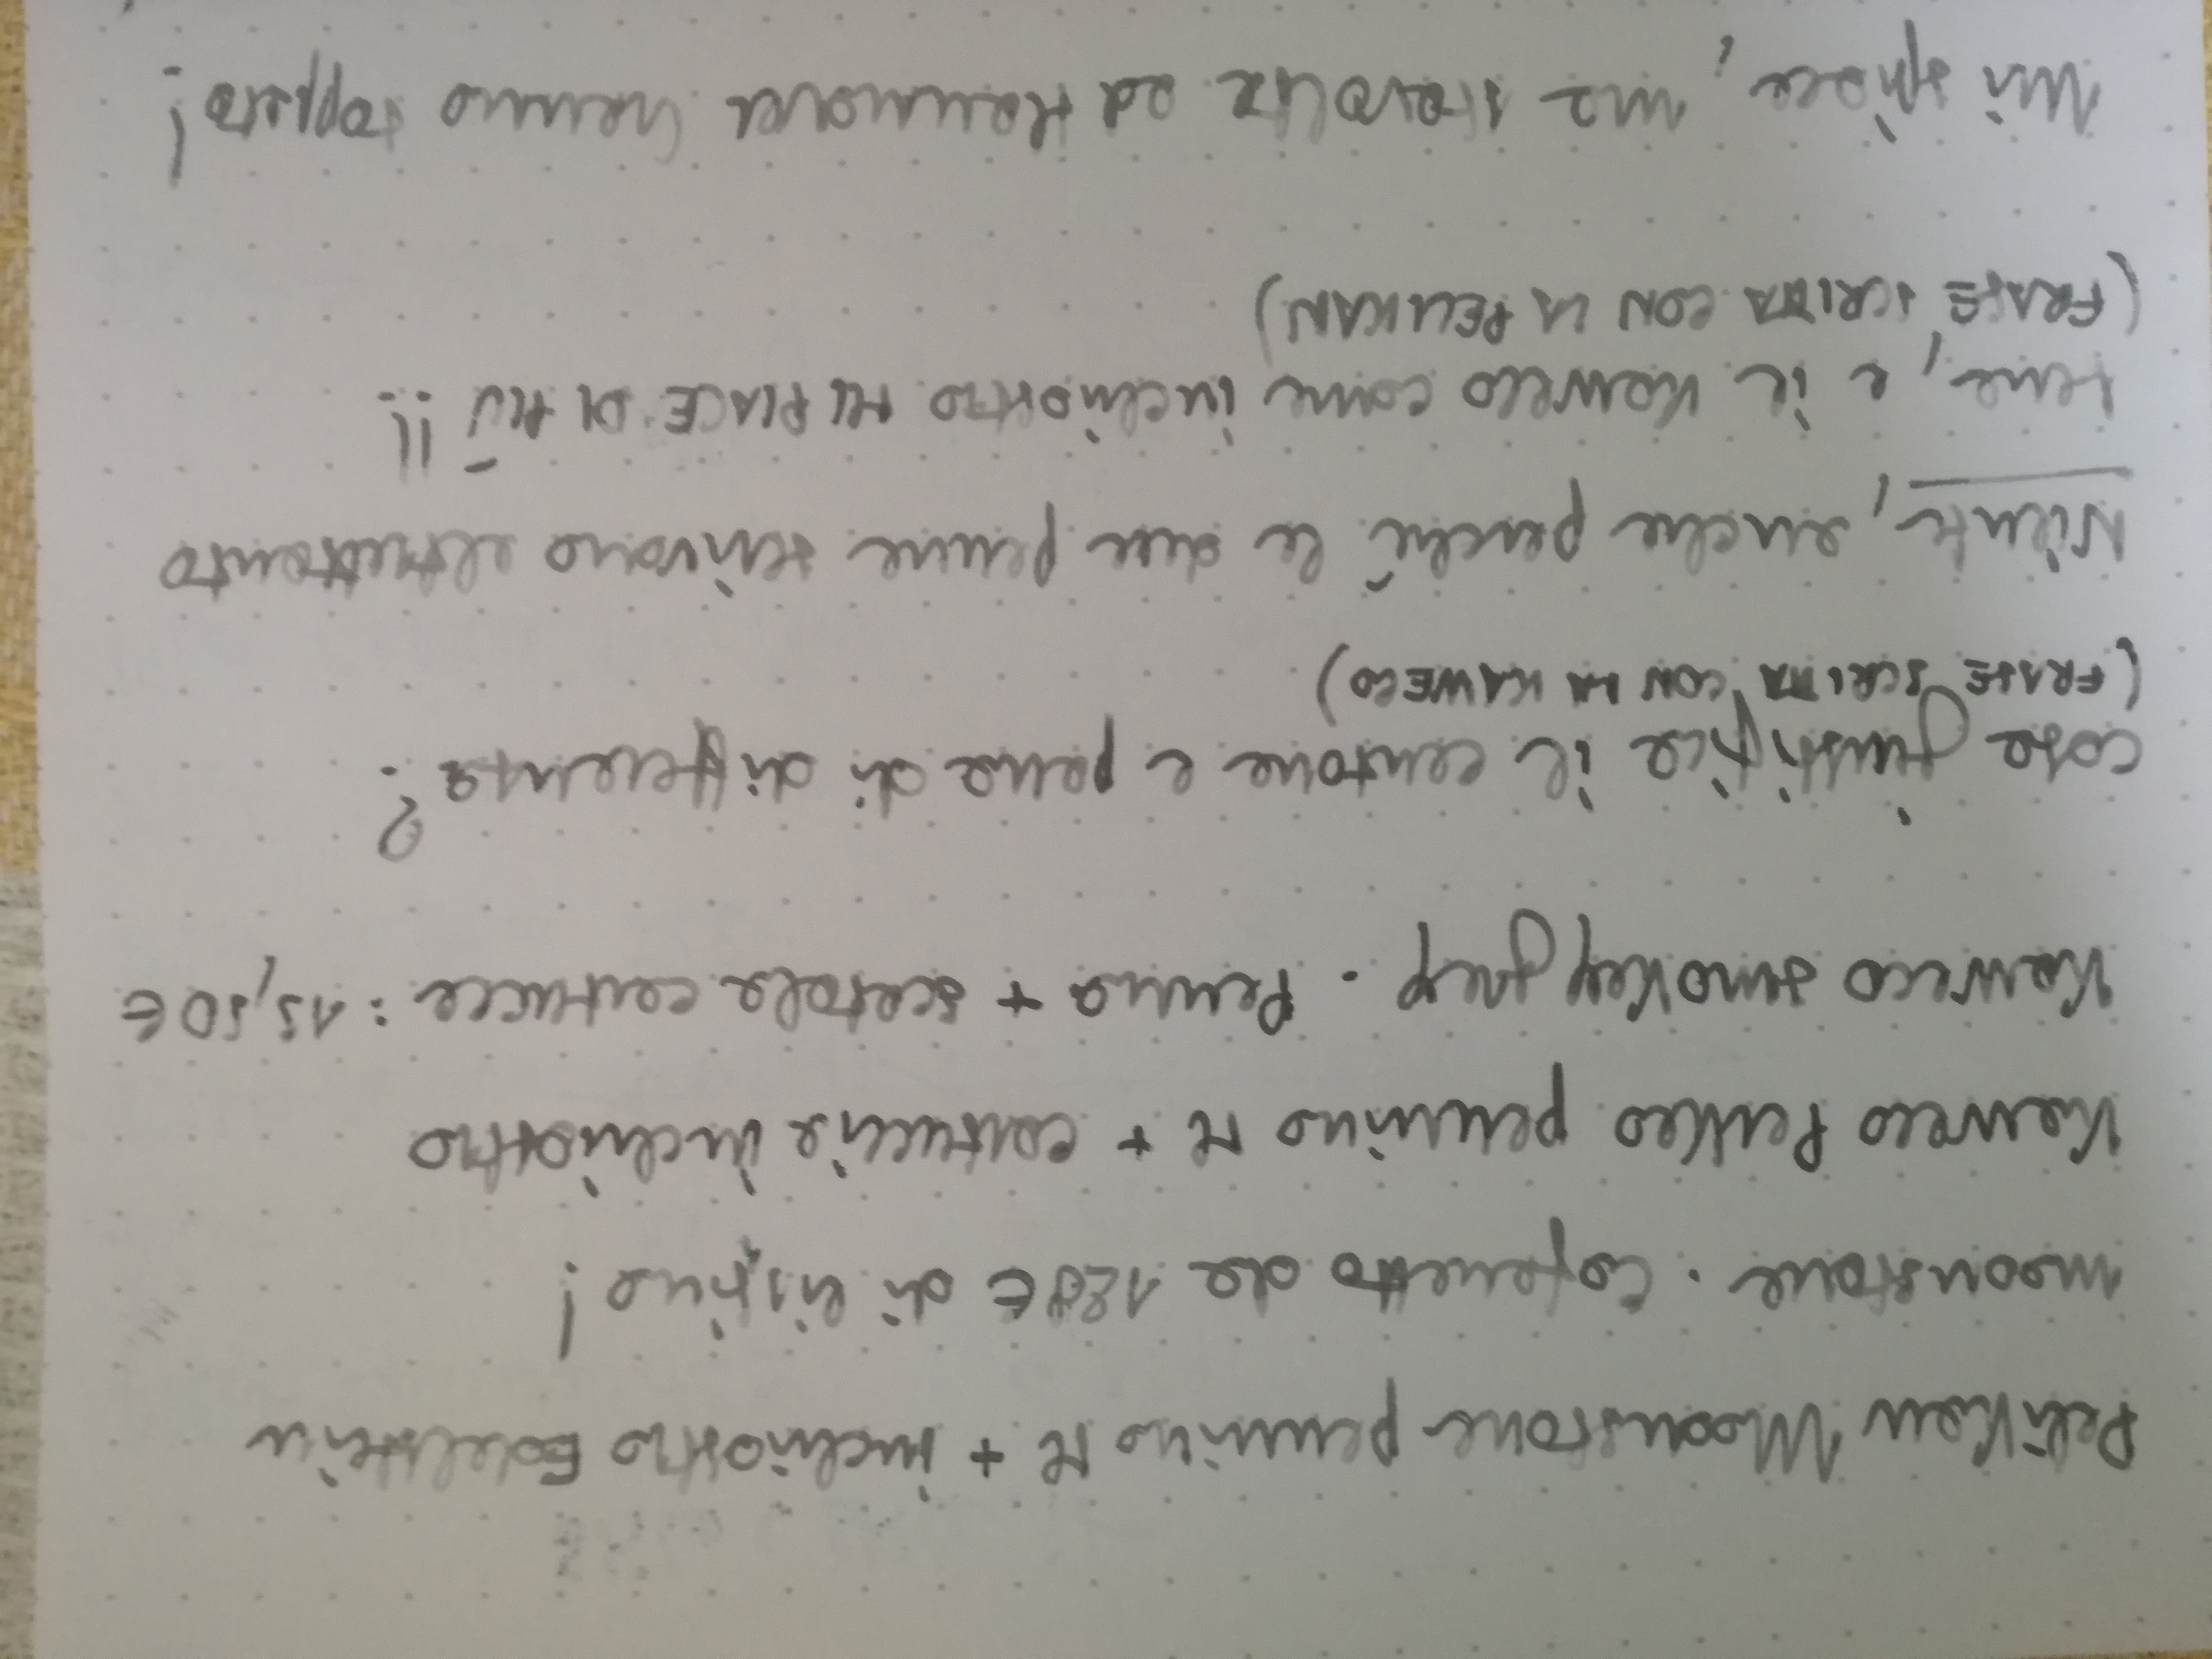 Pelikan Moonstone pennino M + inchiostro Edelstein
moonstone. Cofanetto da 128€ di listino!
Kaweco Perkeo pennino M + cartuccia inchiostro
Kaweco smokey grey. Penna + scatola cartucce: 15,50€
cosa giustifica il centone e pena di differenza?
(FRASE SCRITTA CON LA KAWECO)
Niente, anche perché le due penne scrivono altrettanto
bene, e il Kaweco come inchiostro MI PIACE DI PIÙ!!
(FRASE SCRITTA CON LA PELIKAN)
Mi spiace, ma stavolta ad Hannover hanno toppato!